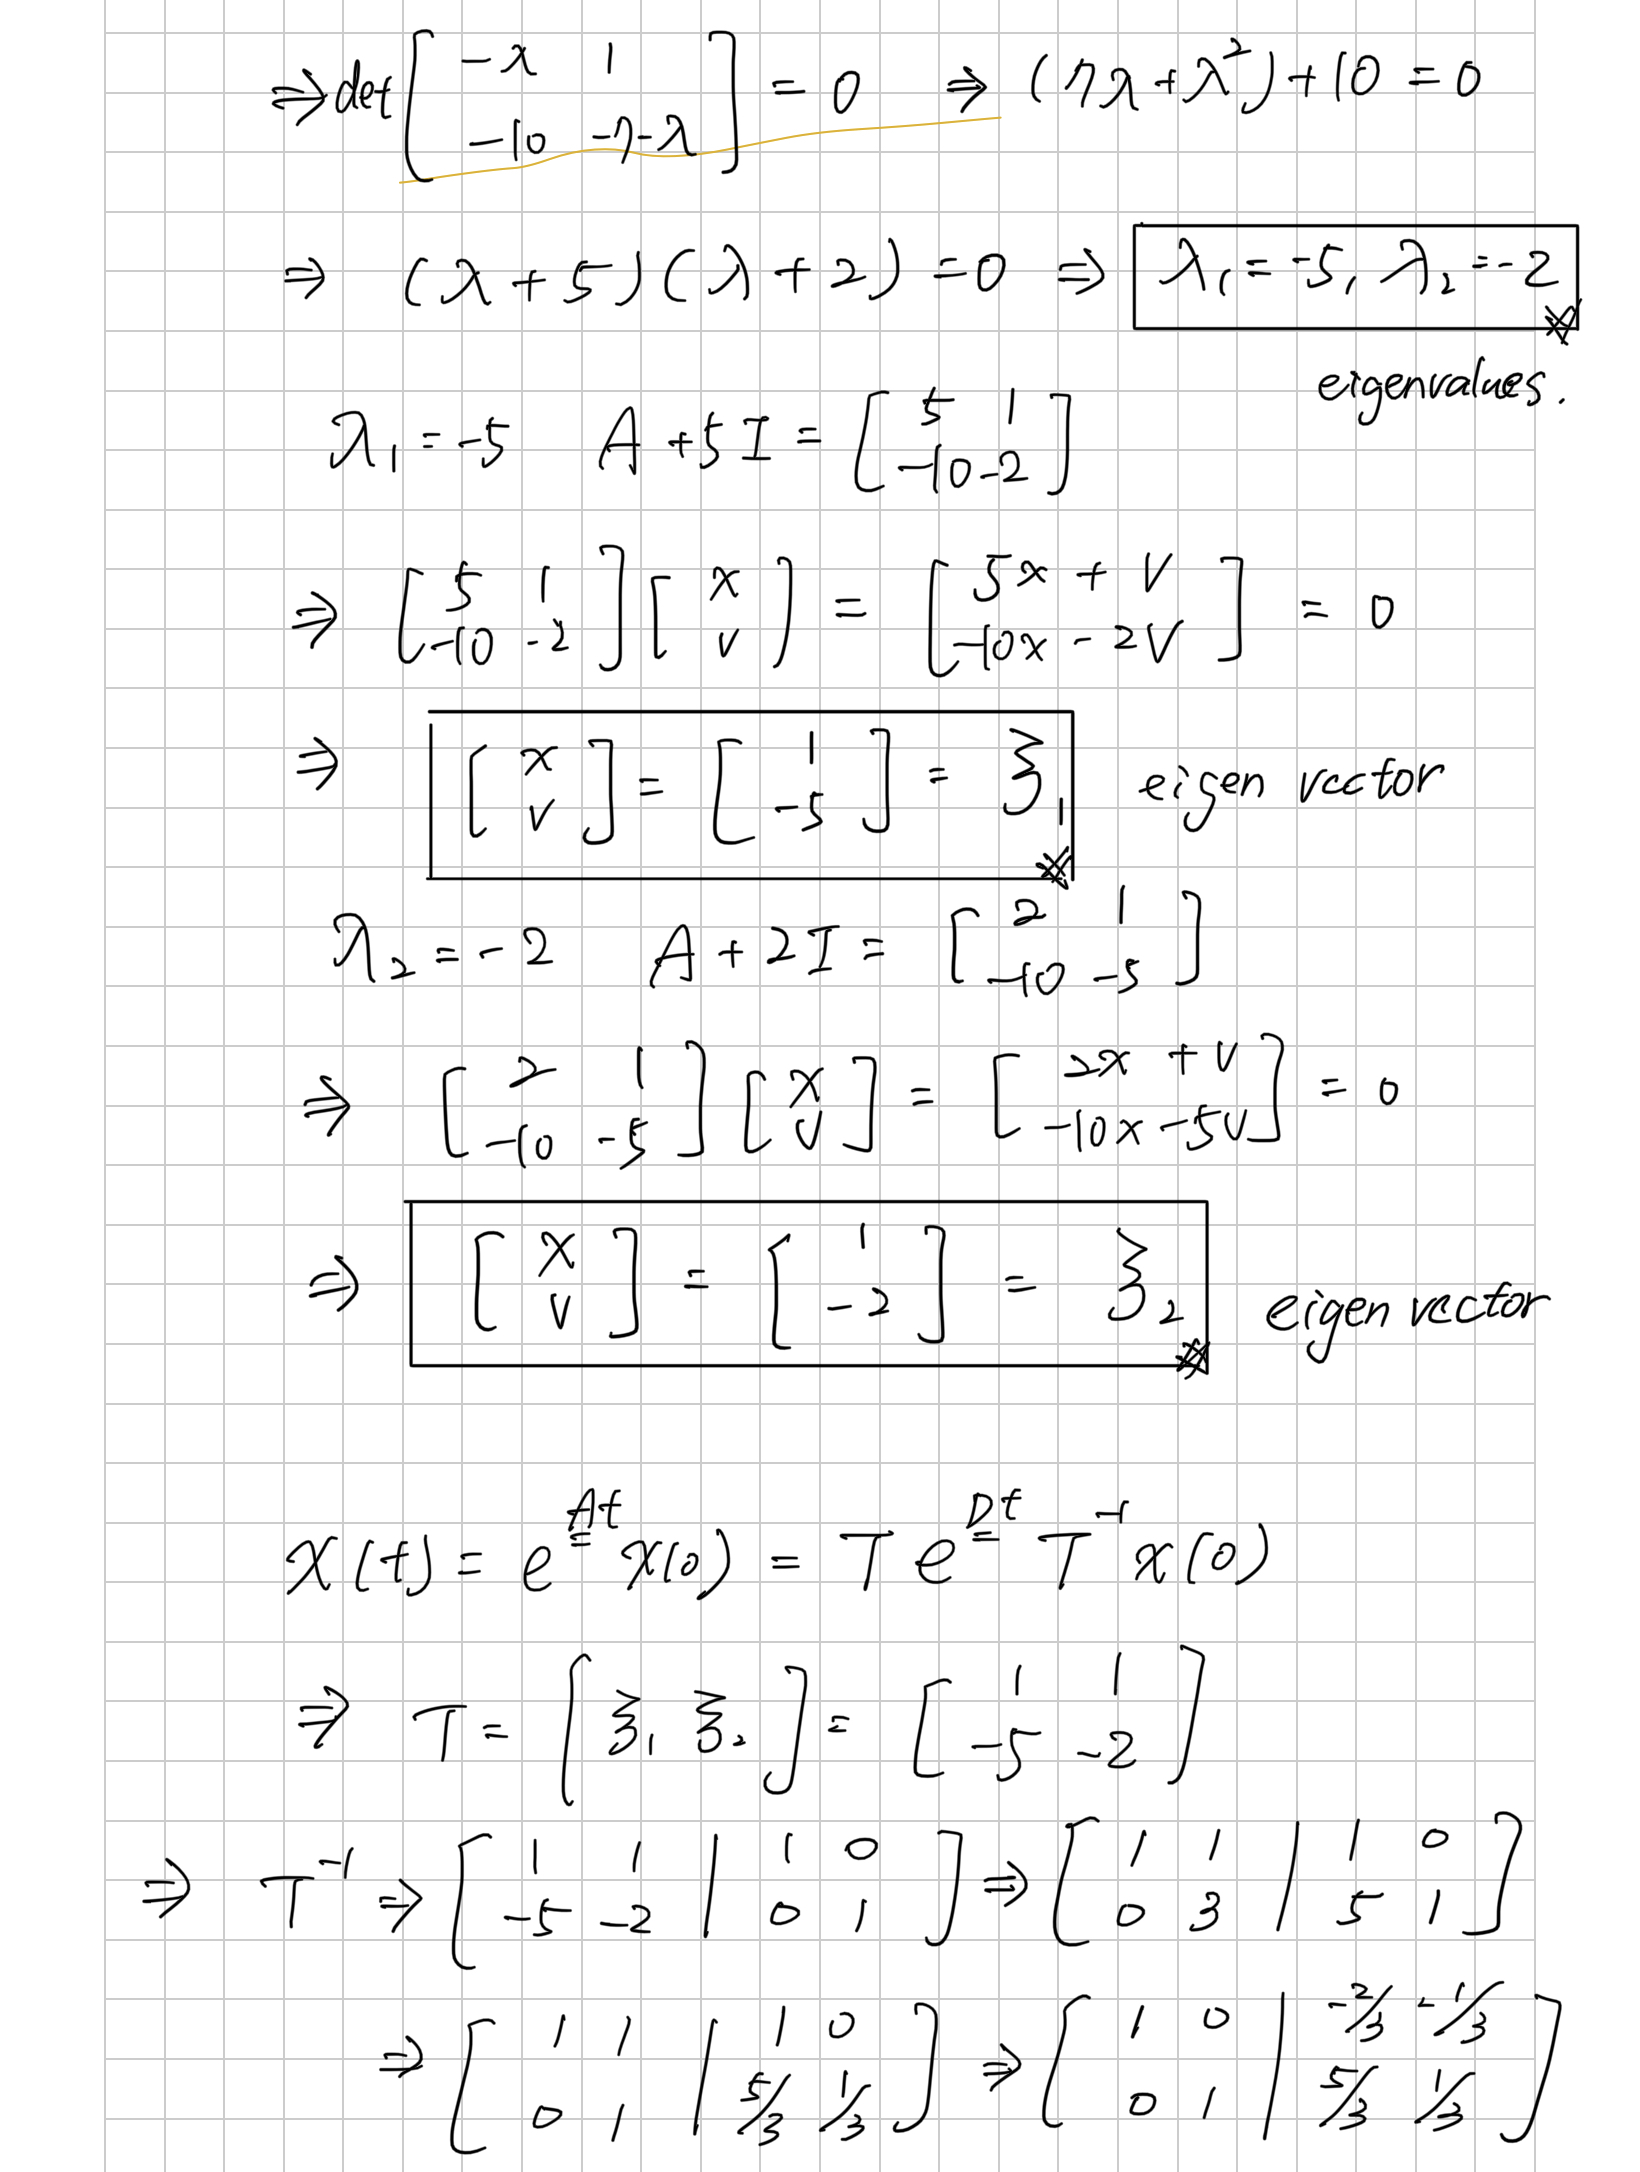 ⇒ det [ -λ 1 ; -10 -7-λ ] = 0 ⇒ (7λ + λ²) + 10 = 0
⇒ (λ + 5)(λ + 2) = 0 ⇒ λ₁ = -5, λ₂ = -2
eigenvalues.
λ₁ = -5 A + 5I = [ 5 1 ; -10 -2 ]
⇒ [ 5 1 ; -10 -2 ] [ x ; v ] = [ 5x + v ; -10x - 2v ] = 0
⇒ [ x ; v ] = [ 1 ; -5 ] = ξ₁ eigen vector
λ₂ = -2 A + 2I = [ 2 1 ; -10 -5 ]
⇒ [ 2 1 ; -10 -5 ] [ x ; v ] = [ 2x + v ; -10x - 5v ] = 0
⇒ [ x ; v ] = [ 1 ; -2 ] = ξ₂ eigen vector
x(t) = e^{At} x(0) = T e^{Dt} T⁻¹ x(0)
⇒ T = [ ξ₁ ξ₂ ] = [ 1 1 ; -5 -2 ]
⇒ T⁻¹ ⇒ [ 1 1 | 1 0 ; -5 -2 | 0 1 ] ⇒ [ 1 1 | 1 0 ; 0 3 | 5 1 ]
⇒ [ 1 1 | 1 0 ; 0 1 | 5/3 1/3 ] ⇒ [ 1 0 | -2/3 -1/3 ; 0 1 | 5/3 1/3 ]